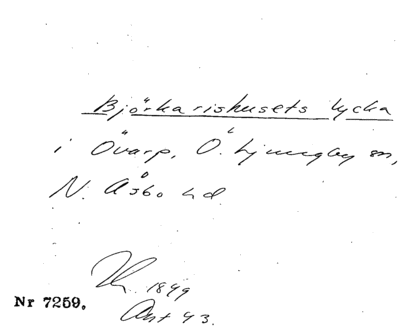 Björkarishusets lycka
i Övarp, Ö. Ljungby sn,
N. Åsbo hd.
1849
Nr 7259.
Ant 43.